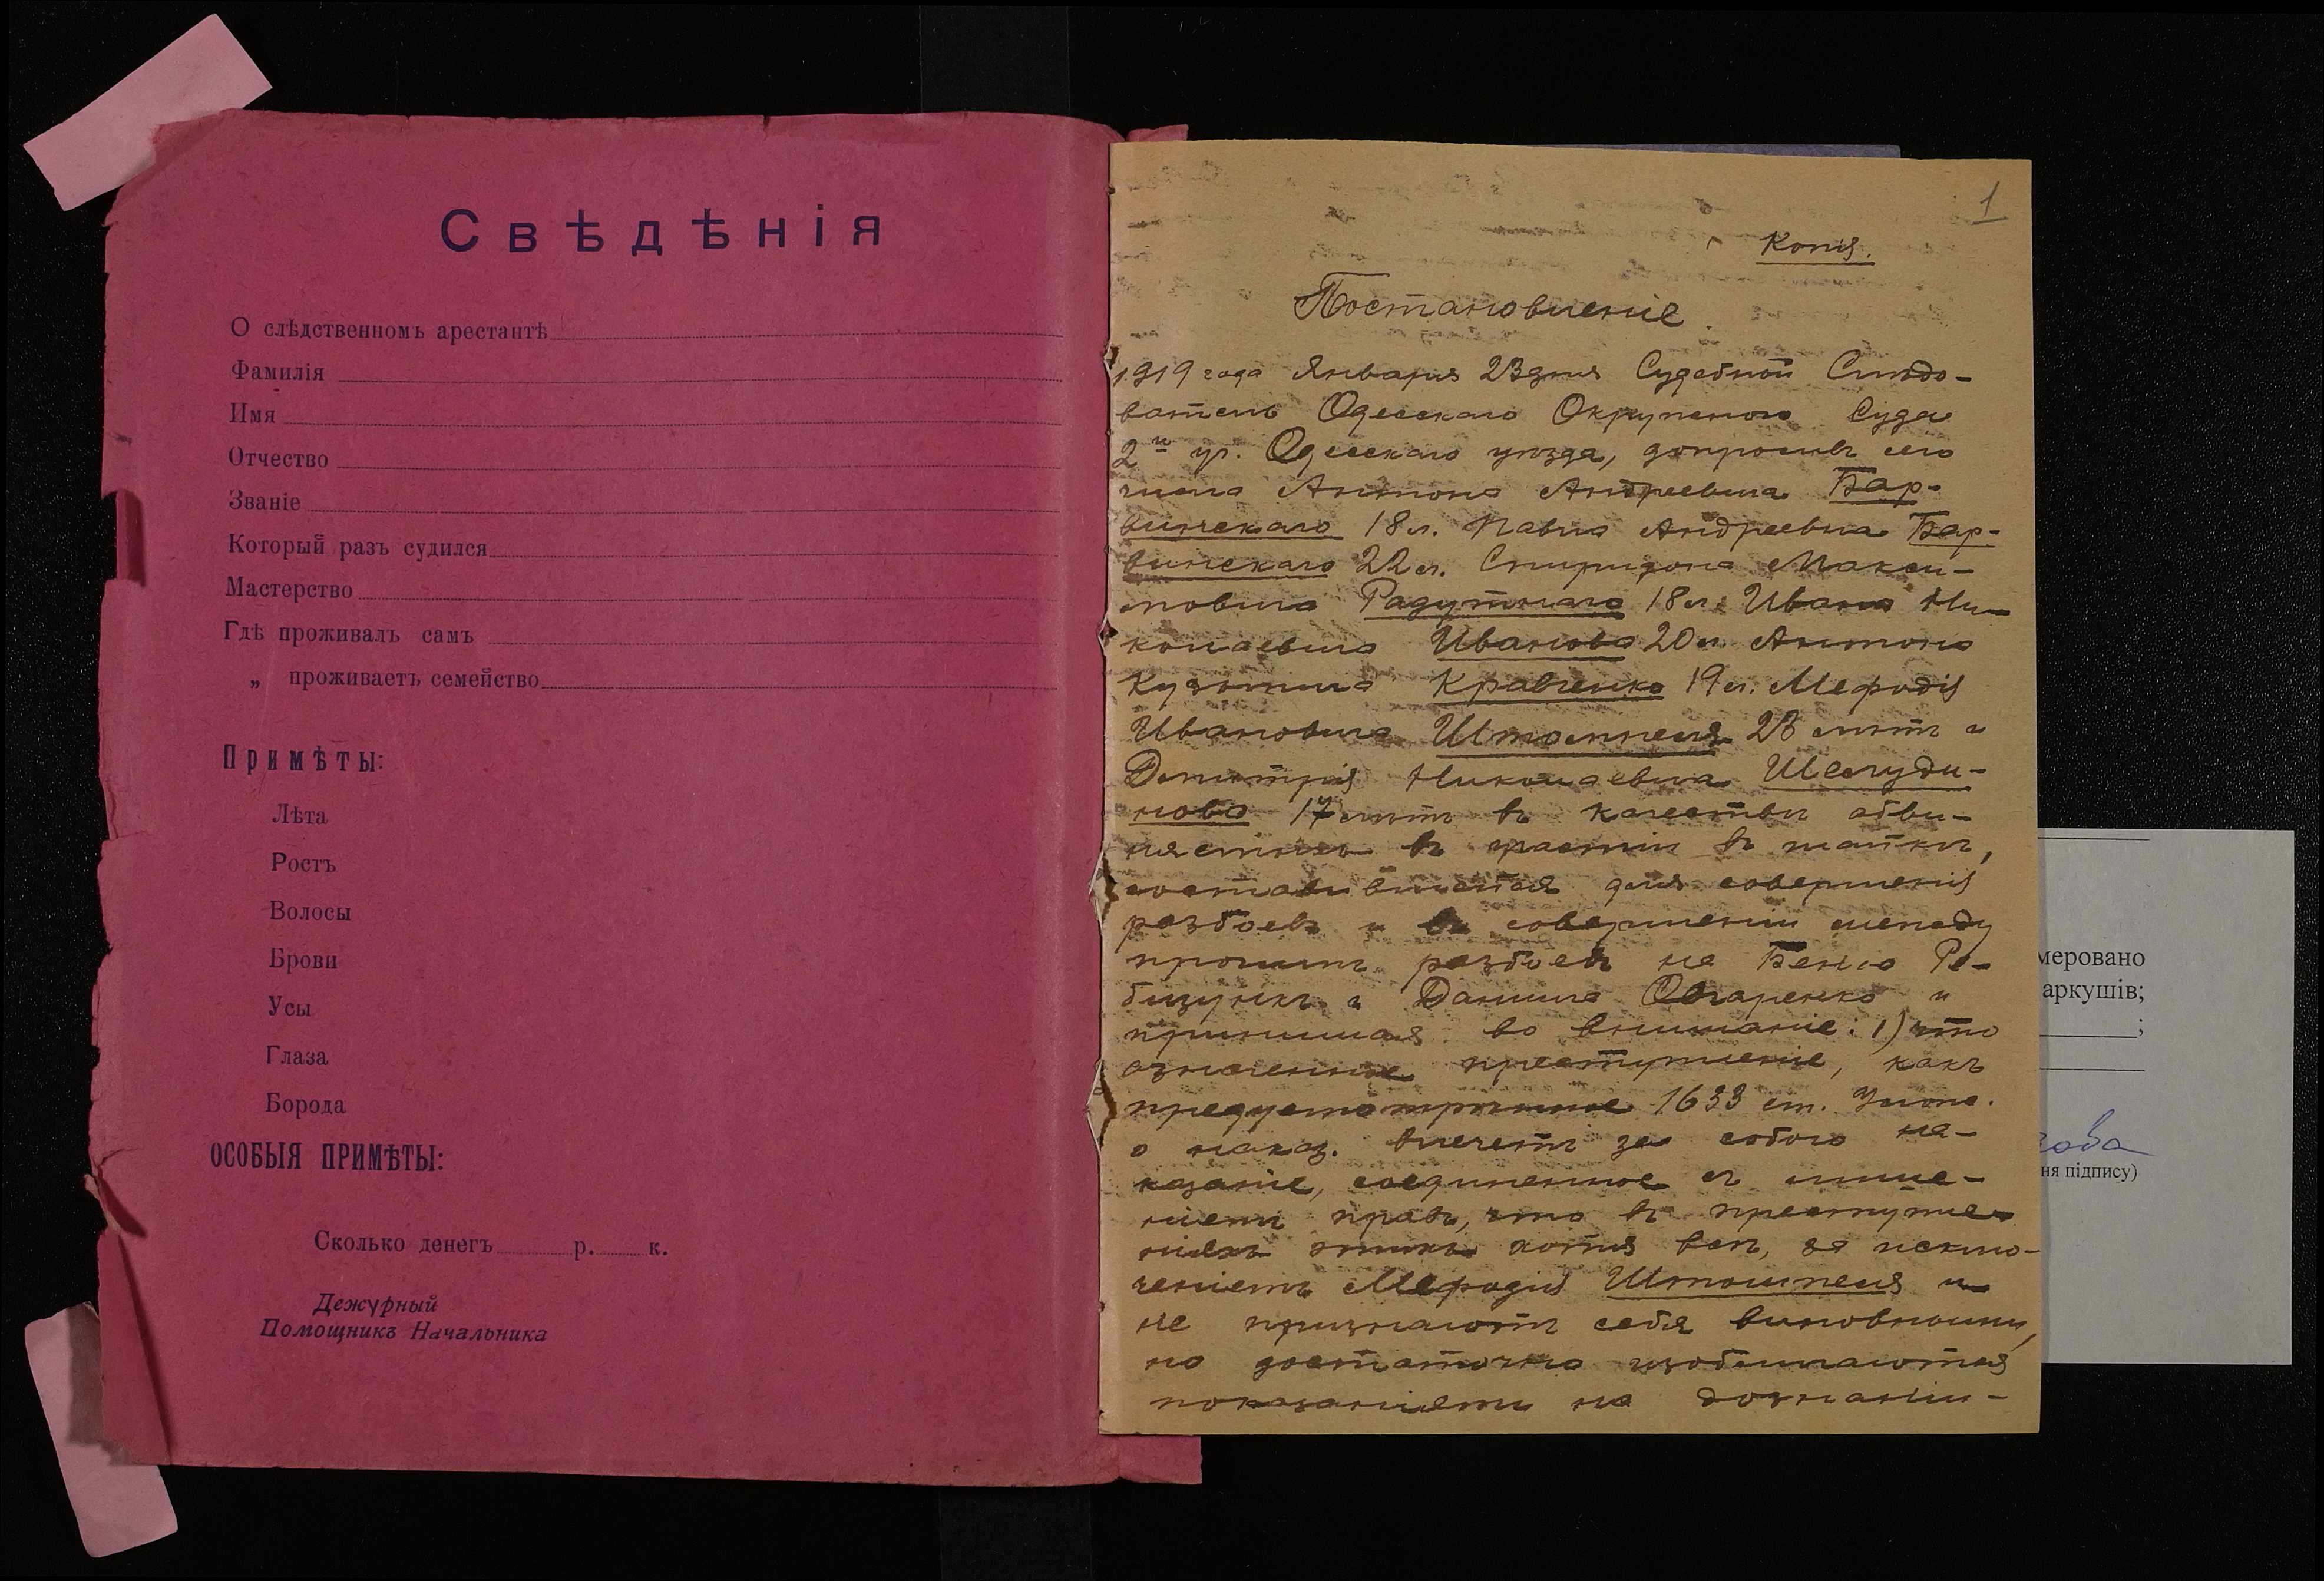 Свѣдѣнія
О слѣдственномъ арестантѣ
Фамилія
Имя
Отчество
Званіе
Который разъ судился
Мастерство
Гдѣ проживалъ самъ
„ проживаетъ семейство
Примѣты:
Лѣта
Ростъ
Волосы
Брови
Усы
Глаза
Борода
ОСОБЫЯ ПРИМѢТЫ:
Сколько денегъ р. к.
Дежурный
Помощникъ Начальника
1
Копія.
Постановленіе
1919 года Января 23 дня Судебной Слѣдо-
ватель Одесскаго Окружного Суда
2го уч. Одесскаго уѣзда, допросивъ сего
числа Антона Андреевича Бар-
винскаго 18 л. Павла Андреевича Бар-
винскаго 22 л. Спиридона Макси-
мовича Радутнаго 18 л. Ивана Ни-
колаевича Иванова 20 л. Антона
Кузьмича Кравченко 19 л. Мефодія
Ивановича Штомпеля 23 лѣтъ и
Дмитрія Николаевича Шелуди-
нова 17 лѣтъ въ качествѣ обви-
няемыхъ въ участіи въ шайкѣ,
составившейся для совершенія
разбоевъ и въ совершеніи между
прочимъ разбоевъ на Ре-
и Данила Овчаренко и
принимая во вниманіе: 1) что
означенное преступленіе, какъ
предусмотрѣнное 1633 ст. Улож.
о наказ. влечетъ за собою на-
казаніе, соединенное съ лише-
ніемъ правъ, что въ преступле-
ніяхъ этихъ хотя всѣ, за исклю-
ченіемъ Мефодія Штомпеля и
не признаютъ себя виновными,
но достаточно изобличаются
показаніями на дознаніи-
меровано
аркушів;
;
ня підпису)